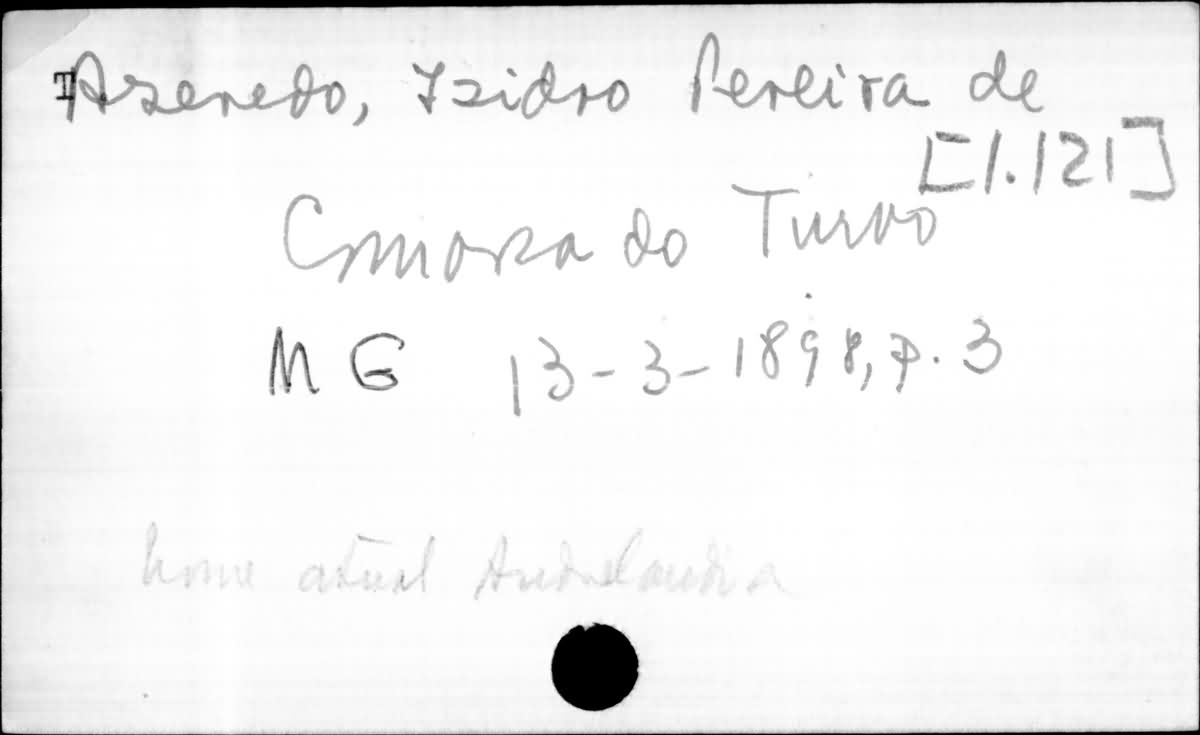 Azeredo, Izidro Pereira de
[1.121]
Comarca do Turvo
MG 13-3-1898, p. 3
nome atual Andrelandia